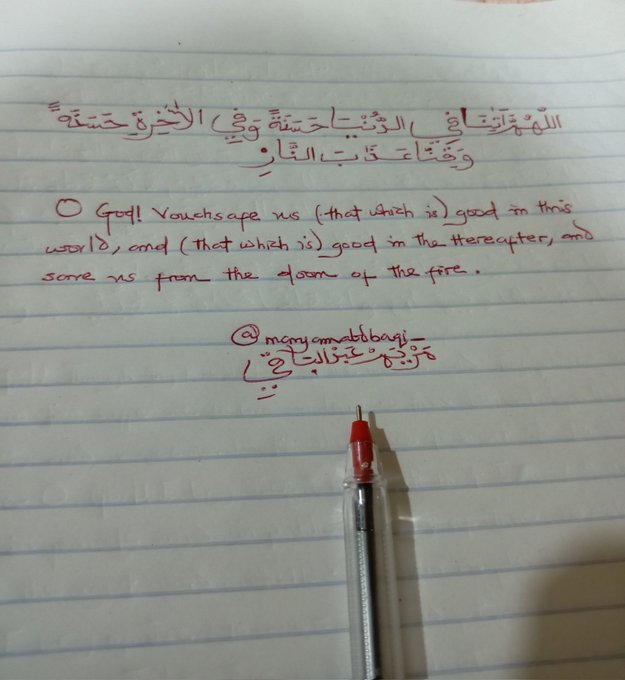 اللّٰهُمَّ آتِنَا فِي الدُّنْيَا حَسَنَةً وَفِي الْاٰخِرَةِ حَسَنَةً
وَقِنَا عَذَابَ النَّارِ
O God! Vouchsafe us (that which is) good in this
world, and (that which is) good in the Hereafter, and
save us from the doom of the fire.
@maryamabdbaqi_
مَرْيَمْ عَبْدُالبَاقِي